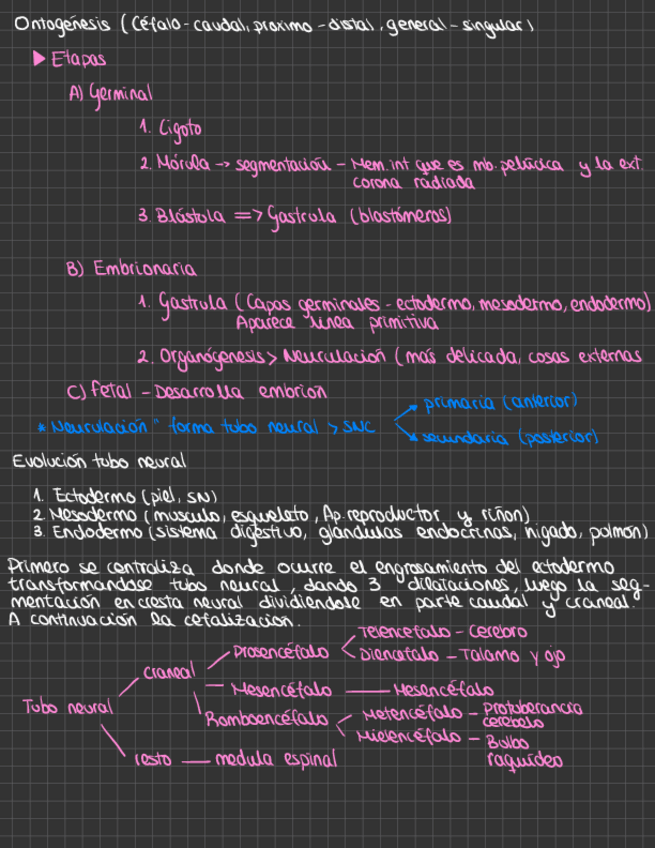 Ontogénesis (Céfalo-caudal, proximo-distal, general-singular)
▶ Etapas
A) Germinal
1. Cigoto
2. Mórula -> segmentación - Mem. int que es mb. pelúcica y la ext.
corona radiada
3. Blástula => Gastrula (blastómeros)
B) Embrionaria
1. Gastrula (Capas germinales - ectodermo, mesodermo, endodermo)
Aparece linea primitiva
2. Organógenesis > Neurulación (más delicada, cosas externas
C) Fetal - Desarrolla embrion
primaria (anterior)
* Neurulación " forma tubo neural > SNC
secundaria (posterior)
Evolución tubo neural
1. Ectodermo (piel, SN)
2. Mesodermo (musculo, esquelato, Ap. reproductor y riñon)
3. Endodermo (sistema digestivo, glándulas endocrinas, higado, pulmon)
Primero se centraliza donde ocurre el engrosamiento del ectodermo
transformandose tubo neural, dando 3 dilataciones, luego la seg-
mentación en cresta neural dividiéndose en parte caudal y craneal.
A continuación la cefalizacion.
Telencefalo - Cerebro
Prosencéfalo
Diencefalo - Talamo y ojo
Craneal
Mesencéfalo — Mesencéfalo
Tubo neural
Romboencéfalo
Metencéfalo - Protuberancia
cerebelo
Mielencéfalo - Bulbo
raquídeo
resto — medula espinal